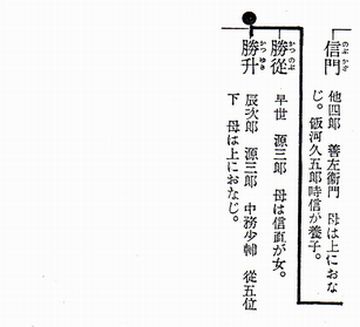 信門 のぶかど
他四郎 善左衞門 母は上におな
じ。飯河久五郎時信が養子。
勝從 かつのぶ
早世 源三郎 母は信直が女。
勝升 かつゆき
辰次郎 源三郎 中務少輔 從五位
下 母は上におなじ。